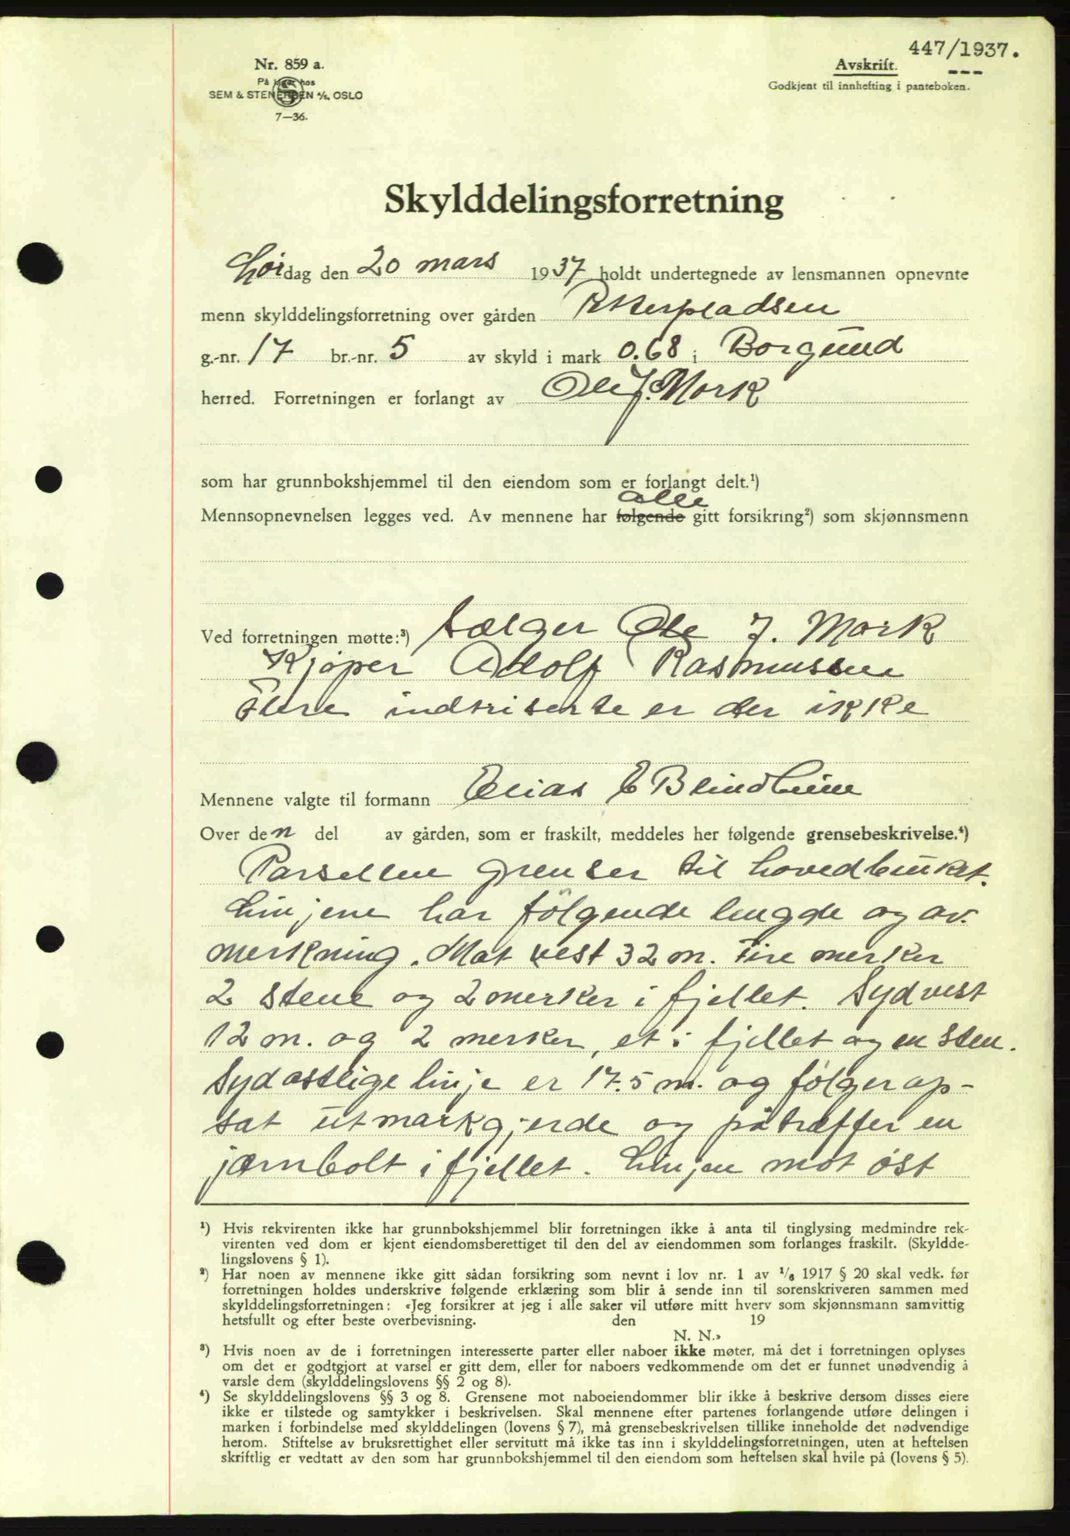 447/1937.
Avskrift.
Godkjent til innhefting i panteboken.
Nr. 859 a.
På lager hos
SEM & STENERSEN A/S, OSLO
7—36.
Skylddelingsforretning
Lørdag den 20 mars 1937 holdt undertegnede av lensmannen opnevnte
menn skylddelingsforretning over gården
g.-nr. 17 br.-nr. 5 av skyld i mark 0.68 i Borgund
herred. Forretningen er forlangt av Ole J. Mork
som har grunnbokshjemmel til den eiendom som er forlangt delt.¹)
alle
Mennsopnevnelsen legges ved. Av mennene har følgende gitt forsikring²) som skjønnsmenn
Ved forretningen møtte:³) Sælger Ole J. Mork
Kjøper Adolf Rasmussen
Flere indtriserte er der ikke
Mennene valgte til formann Elias E Blindheim
Over den del av gården, som er fraskilt, meddeles her følgende grensebeskrivelse.⁴)
Parsellen grenser til hovedbruket.
Linjene har følgende lengde og av-
merkning. Mot vest 32 m. Fire merker
2 stene og 2 merker i fjellet. Sydvest
12 m. og 2 merker, et i fjellet og en sten.
Sydøstlige linje er 17.5 m. og følger op-
sat utmarkgjerde og påtræffer en
jærnbolt i fjellet. Linjen mot øst
¹) Hvis rekvirenten ikke har grunnbokshjemmel blir forretningen ikke å anta til tinglysing medmindre rek-
virenten ved dom er kjent eiendomsberettiget til den del av eiendommen som forlanges fraskilt. (Skyldde-
lingslovens § 1).
²) Har noen av mennene ikke gitt sådan forsikring som nevnt i lov nr. 1 av 1/6 1917 § 20 skal vedk. før
forretningen holdes underskrive følgende erklæring som blir å sende inn til sorenskriveren sammen med
skylddelingsforretningen: «Jeg forsikrer at jeg i alle saker vil utføre mitt hverv som skjønnsmann samvittig
hetsfullt og efter beste overbevisning. den 19
N. N.»
³) Hvis noen av de i forretningen interesserte parter eller naboer ikke møter, må det i forretningen oplyses
om det er godtgjort at varsel er gitt dem, eller for naboers vedkommende om det er funnet unødvendig å
varsle dem (skylddelingslovens §§ 2 og 8).
⁴) Se skylddelingslovens §§ 3 og 8. Grensene mot naboeiendommer blir ikke å beskrive dersom disses eiere
ikke er tilstede og samtykker i beskrivelsen. Skal mennene efter partenes forlangende utføre delingen i
marken i forbindelse med skylddelingen (lovens § 7), må grensebeskrivelsen tillike inneholde det nødvendige
herom. Stiftelse av bruksrettighet eller servitutt må ikke tas inn i skylddelingsforretningen, uten at heftelsen
skriftlig er vedtatt av den som har grunnbokshjemmel til den eiendom som heftelsen skal hvile på (lovens § 5).